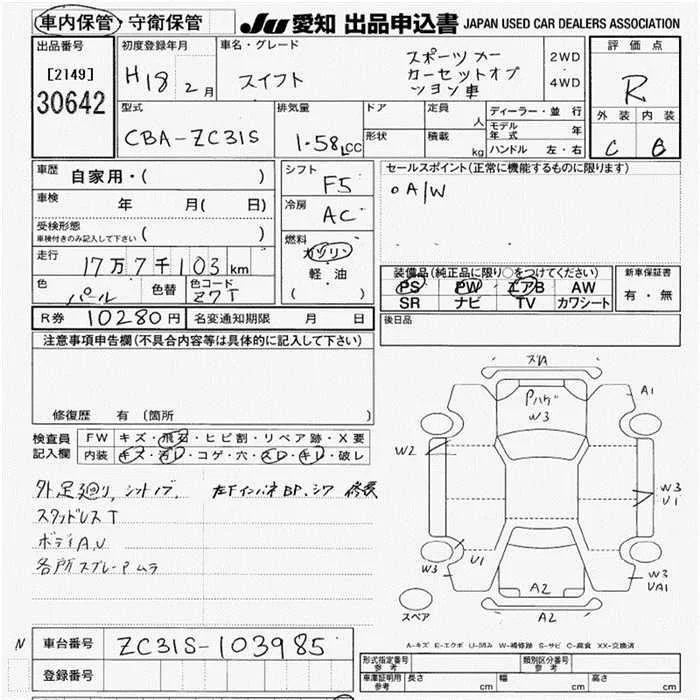 車内保管・守衛保管
JU 愛知 出品申込書 JAPAN USED CAR DEALERS ASSOCIATION
出品番号
[2149]
30642
初度登録年月
H18 2月
車名・グレード
スイフト
スポーツカー
カーセットオプ
ション車
2WD
4WD
評価点
R
外装 内装
C B
型式
CBA-ZC31S
排気量
1.58LCC
ドア
形状
定員 人
積載 kg
ディーラー・並行
モデル年式 年
ハンドル 左・右
車歴 自家用・( )
車検 年 月( 日)
受検形態
車検付きのみ記入して下さい ( )
走行 17万7千103km
色 パール 色替 色コード Z7T
シフト F5
冷房 AC
燃料
ガソリン
軽油
( )
セールスポイント(正常に機能するものに限ります)
○A/W
装備品(純正品に限り○をつけてください)
PS PW エアB AW
SR ナビ TV カワシート
新車保証書
有・無
R券 10280円 名変通知期限 月 日
後日品
注意事項申告欄(不具合内容等は具体的に記入して下さい)
修復歴 有(箇所
検査員記入欄
FW キズ・飛石・ヒビ割・リペア跡・X要
内装 キズ・汚レ・コゲ・穴・スレ・キレ・破レ
外足廻り、シフトノブ、 左Fインパネ BP、シワ 修表
スタッドレスT
ボディA,U
各所スプレーPムラ
ズA
Pハゲ
W3
A1
W2
W3
U1
W3
U1
A2
W3
UA1
スペア
A2
A-キズ E-エクボ U-凹み W-補修跡 S-サビ C-腐食 XX-交換済
N 車台番号 ZC31S-103985
登録番号
形式指定番号 参考
類別区分番号 参考
車庫証明用 参考 長さ cm 幅 cm 高さ cm